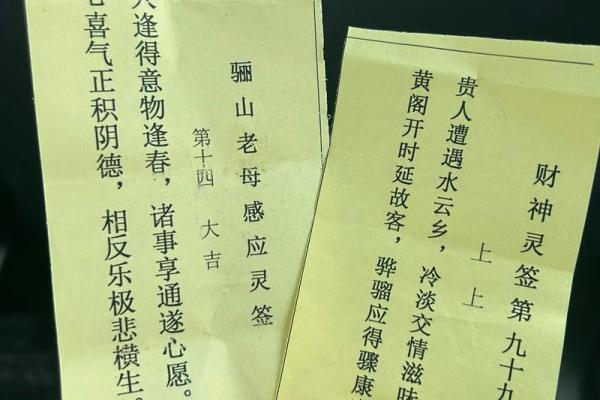 骊山老母感应灵签
第十四 大吉
人逢得意物逢春，诸事享通遂心愿。
喜气正积阴德，相反乐极悲横生。
财神灵签第九十九
上上
贵人遭遇水云乡，冷淡交情滋味
黄阁开时延故客，骅骝应得骤康